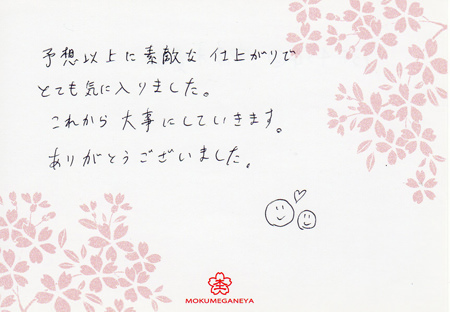 予想以上に素敵な仕上がりで
とても気に入りました。
これから大事にしていきます。
ありがとうございました。
MOKUMEGANEYA